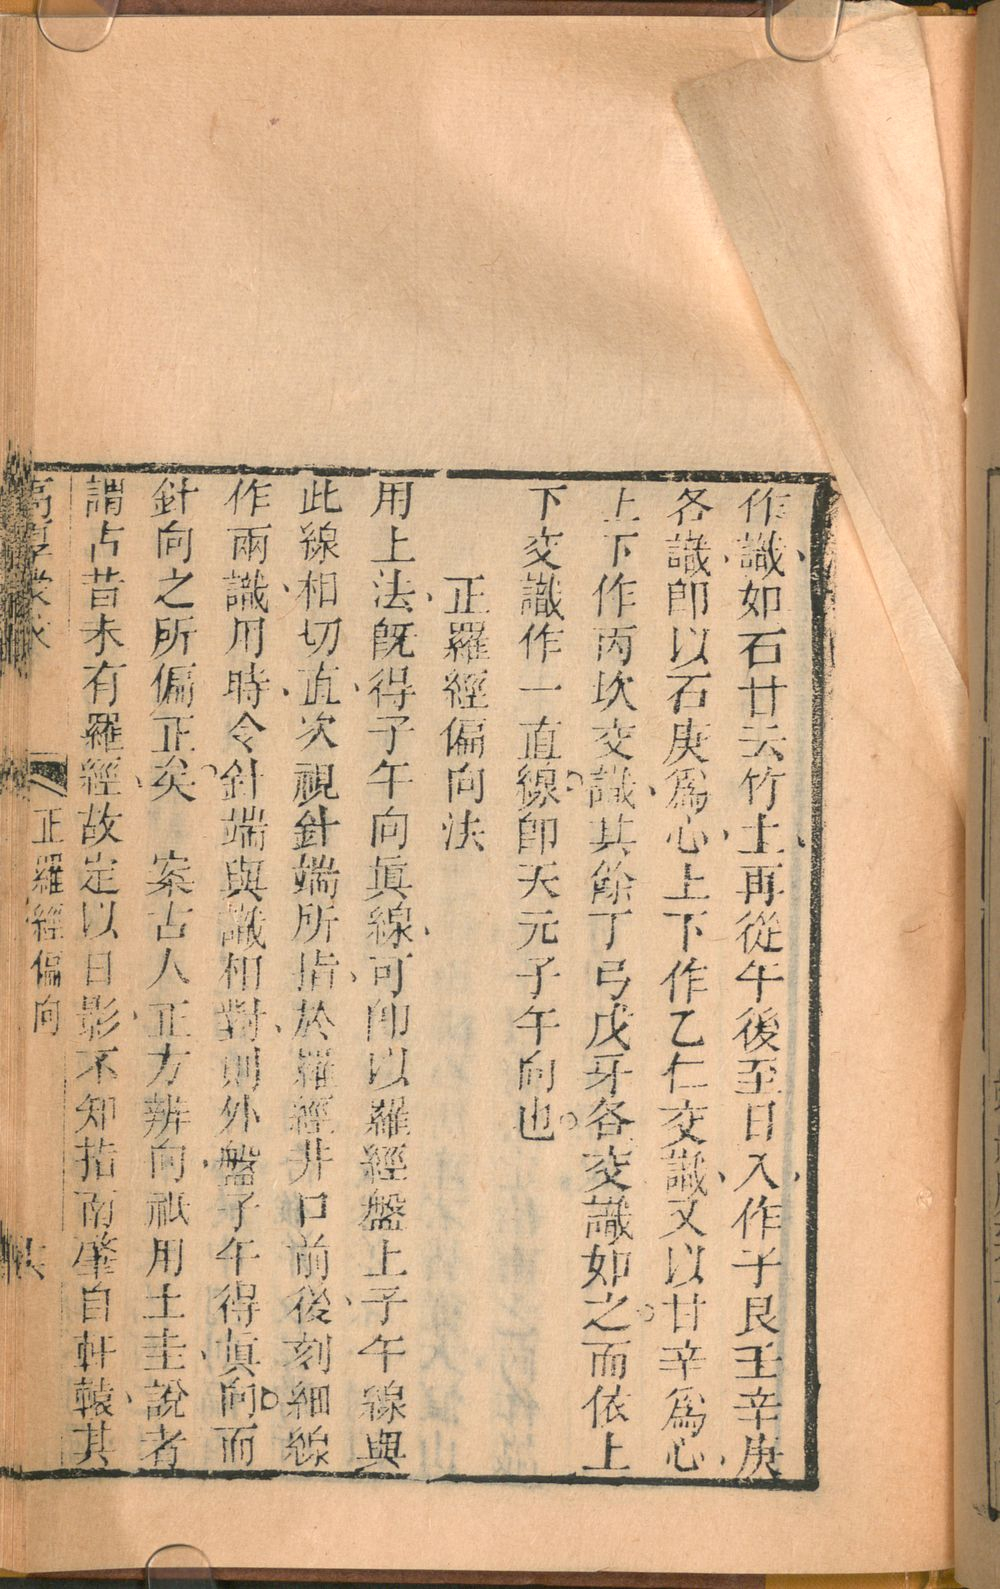 作識如石廿去竹土再從午後至日入作子艮壬辛庚
各識卽以石庚爲心上下作乙仁交識又以甘辛爲心
上下作丙坎交識其餘丁弓戊牙各交識如之而依上
下交識作一直線卽天元子午向也
正羅經偏向法
用上法旣得子午向眞線可卽以羅經盤上子午線與
此線相切直次視針端所指於羅經井口前後刻細線
作兩識用時令針端與識相對則外盤子午得眞向而
針向之所偏正矣 案古人正方辨向祇用土圭說者
謂古昔未有羅經故定以日影不知指南肇自軒轅其
高厚蒙求
正羅經偏向